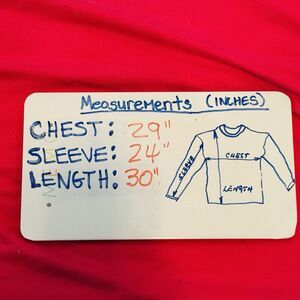 Measurements (INCHES)
CHEST: 29"
SLEEVE: 24"
LENGTH: 30"
SLEEVE
CHEST
LENGTH